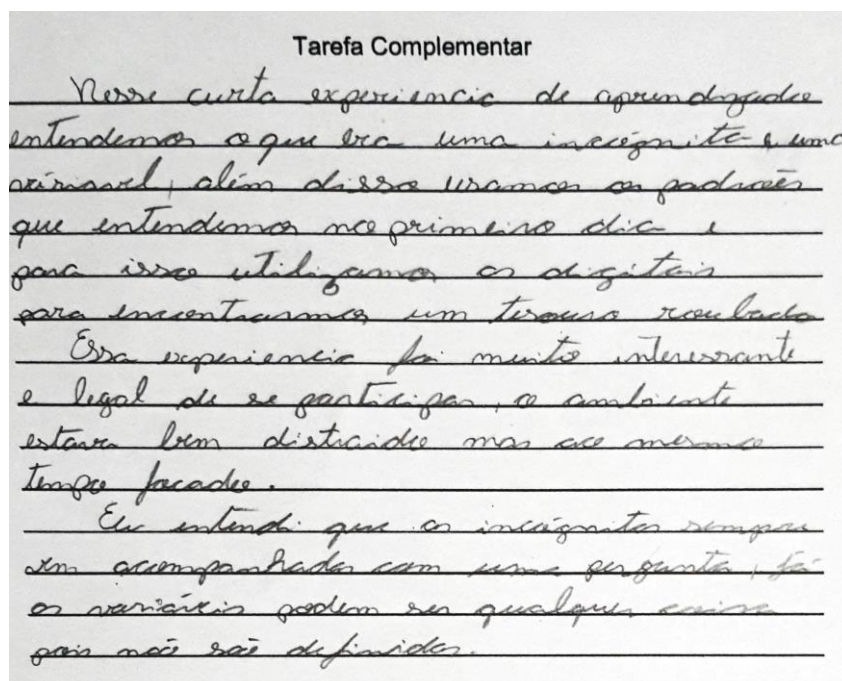 Tarefa Complementar
Nesse curta experiencia de aprendizado
entendemos o que era uma incógnita e uma
váriavel, além disso usamos os padrões
que entendemos no primeiro dia e
para isso utilizamos as digitais
para encontrarmos um tesouro roubado
Essa experiencia foi muito interessante
e legal de se participar, o ambiente
estava bem distraido mas ao mesmo
tempo focado.
Eu entendi que as incógnitas sempre
vem acompanhadas com uma pergunta, já
as variáveis podem ser qualquer coisa
pois não são definidas.